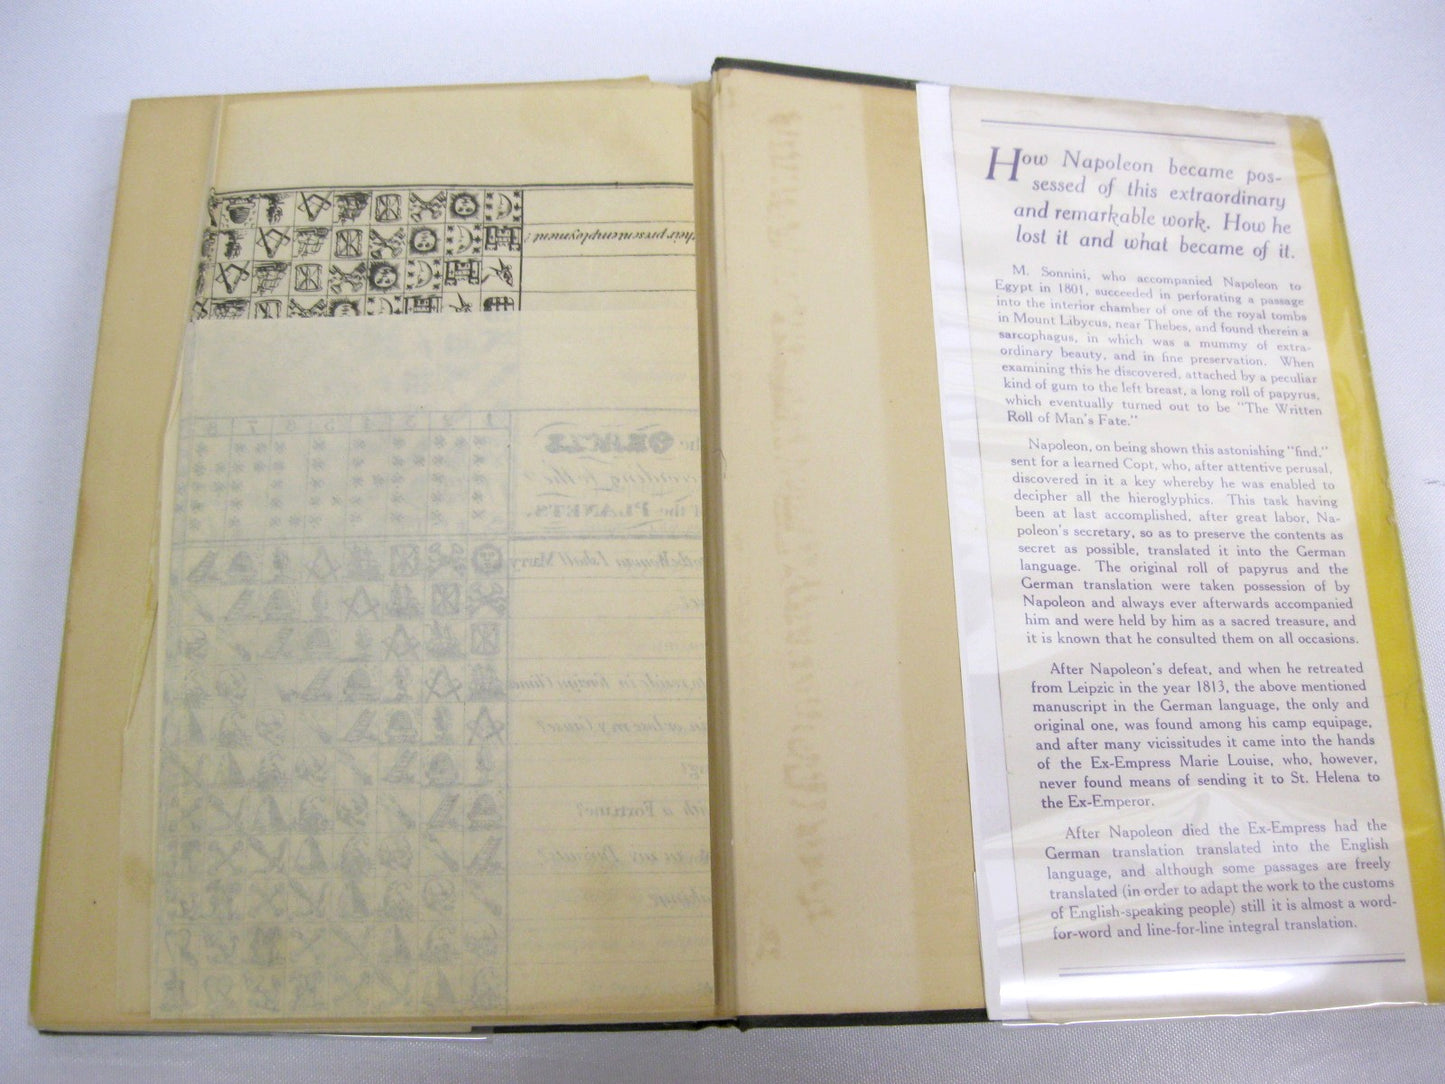 their present employment?
ORACLE
according to the
of the PLANETS.
Woman I shall Marry
reside in foreign Clime
or lose my Cause?
with a Fortune?
How Napoleon became pos-
sessed of this extraordinary
and remarkable work. How he
lost it and what became of it.
M. Sonnini, who accompanied Napoleon to
Egypt in 1801, succeeded in perforating a passage
into the interior chamber of one of the royal tombs
in Mount Libycus, near Thebes, and found therein a
sarcophagus, in which was a mummy of extra-
ordinary beauty, and in fine preservation. When
examining this he discovered, attached by a peculiar
kind of gum to the left breast, a long roll of papyrus,
which eventually turned out to be "The Written
Roll of Man's Fate."
Napoleon, on being shown this astonishing "find,"
sent for a learned Copt, who, after attentive perusal,
discovered in it a key whereby he was enabled to
decipher all the hieroglyphics. This task having
been at last accomplished, after great labor, Na-
poleon's secretary, so as to preserve the contents as
secret as possible, translated it into the German
language. The original roll of papyrus and the
German translation were taken possession of by
Napoleon and always ever afterwards accompanied
him and were held by him as a sacred treasure, and
it is known that he consulted them on all occasions.
After Napoleon's defeat, and when he retreated
from Leipzic in the year 1813, the above mentioned
manuscript in the German language, the only and
original one, was found among his camp equipage,
and after many vicissitudes it came into the hands
of the Ex-Empress Marie Louise, who, however,
never found means of sending it to St. Helena to
the Ex-Emperor.
After Napoleon died the Ex-Empress had the
German translation translated into the English
language, and although some passages are freely
translated (in order to adapt the work to the customs
of English-speaking people) still it is almost a word-
for-word and line-for-line integral translation.